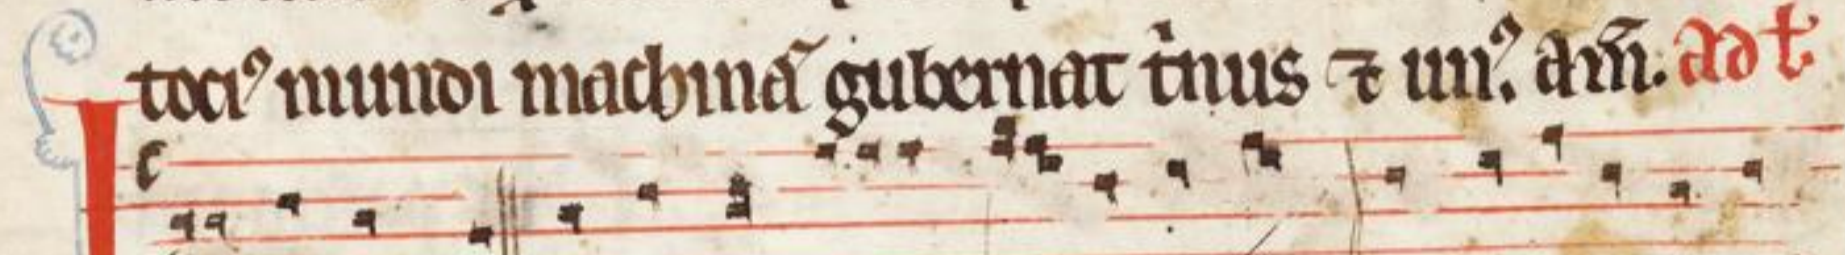 toci⁹ mundi machinā gubernat t͛nus ⁊ un⁹. am̄. ad t͛.